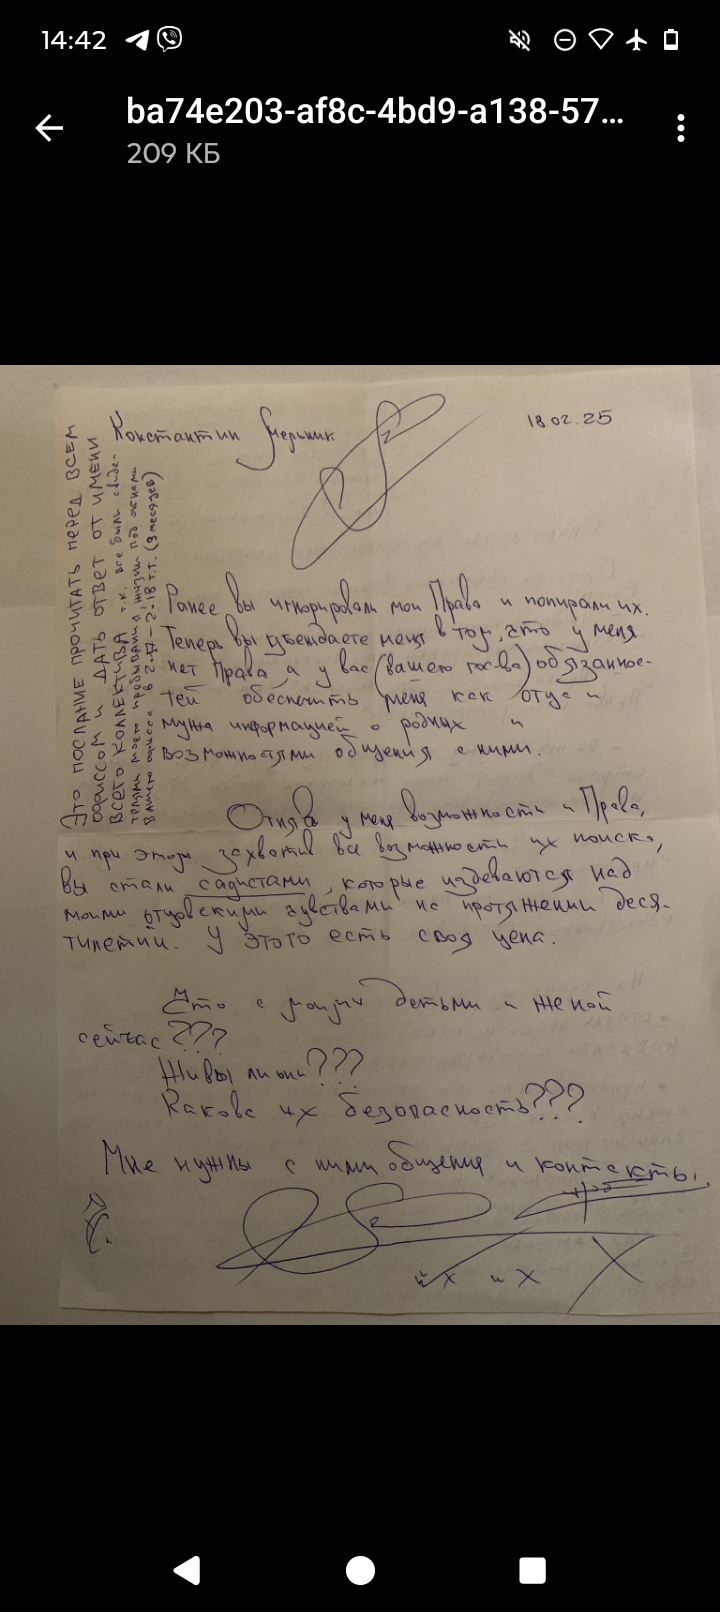 14:42
ba74e203-af8c-4bd9-a138-57...
209 КБ
Константин
18.02.25
Это послание прочитать перед всем
оффиссом и дать ответ от имени
всего коллектива т.к. все были свиде-
телями моего пребывания жизни под окнами
Вашего оффисса в (9 месяцев)
Ранее вы игнорировали мои Права и попирали их.
Теперь вы убеждаете меня в том, что у меня
нет Права, а у вас (вашего гос-ва) обязаннос-
тей обеспечить меня как отца и
мужа информацией о родных и
возможностями общения с ними.
Отняв у меня возможности и Права,
и при этом захватив все возможности их поиска,
вы стали садистами, которые издеваются над
моими отцовскими чувствами на протяжении деся-
тилетий. У этого есть своя цена.
Что с моими детьми и женой
сейчас???
Живы ли они???
Какова их безопасность???
Мне нужны с ними общения и контакты.
их их